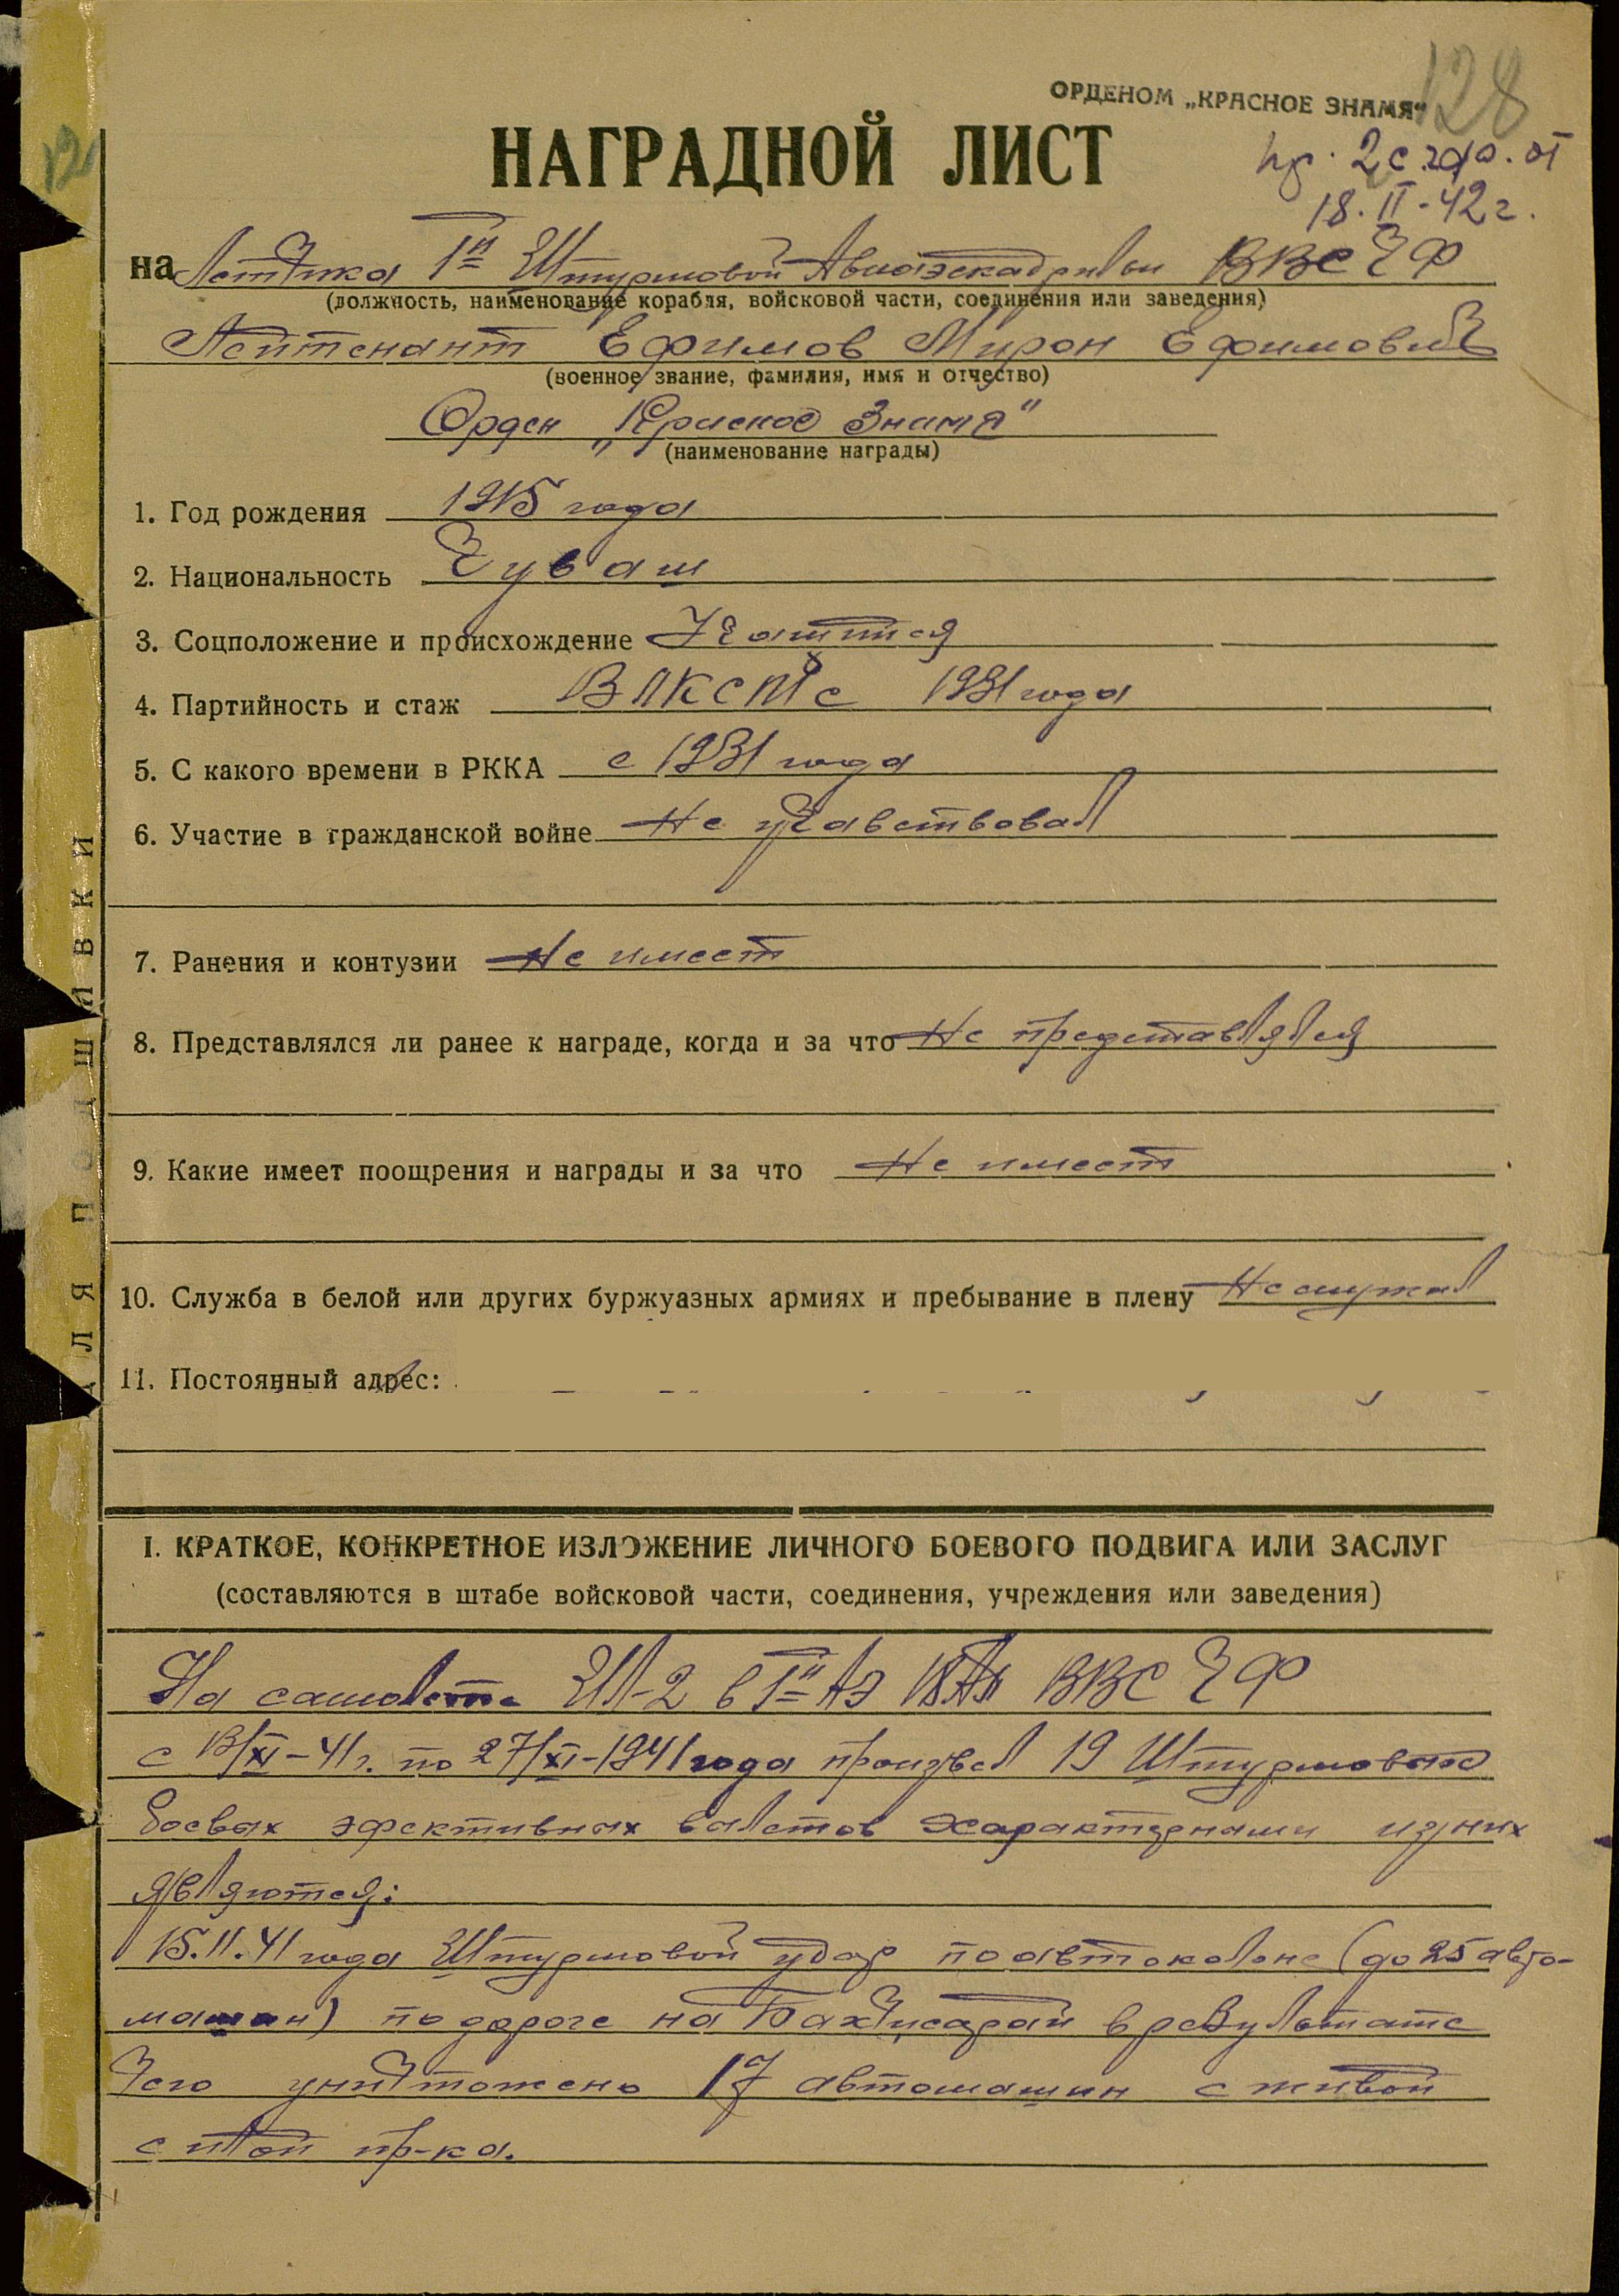 128
ОРДЕНОМ „КРАСНОЕ ЗНАМЯ"
НАГРАДНОЙ ЛИСТ
пр. 2с от
18.II-42г.
на Летчика 1й Штурмовой Авиаэскадрильи ВВС ЧФ
(должность, наименование корабля, войсковой части, соединения или заведения)
Лейтенант Ефимов Мирон Ефимович
(военное звание, фамилия, имя и отчество)
Орден „Красное Знамя"
(наименование награды)
1. Год рождения 1915 года
2. Национальность Чуваш
3. Соцположение и происхождение
4. Партийность и стаж с 1931 года
5. С какого времени в РККА с 1931 года
6. Участие в гражданской войне Не участвовал
7. Ранения и контузии Не имеет
8. Представлялся ли ранее к награде, когда и за что Не представлялся
9. Какие имеет поощрения и награды и за что Не имеет
10. Служба в белой или других буржуазных армиях и пребывание в плену Не служил
11. Постоянный адрес:
ДЛЯ ПОДШИВКИ
I. КРАТКОЕ, КОНКРЕТНОЕ ИЗЛОЖЕНИЕ ЛИЧНОГО БОЕВОГО ПОДВИГА ИЛИ ЗАСЛУГ
(составляются в штабе войсковой части, соединения, учреждения или заведения)
На самолете ИЛ-2 в 1й АЭ ВВС ЧФ
с 13/XI-41г. по 27/XI-1941 года произвел 19 Штурмовых
боевых эфективных валетов характерными из них
являются:
15.11.41 года Штурмовой удар по автоколоне (до 25 авто-
машин) по дороге на Бахчисарай в результате
чего уничтожено 17 автомашин с живой
силой пр-ка.